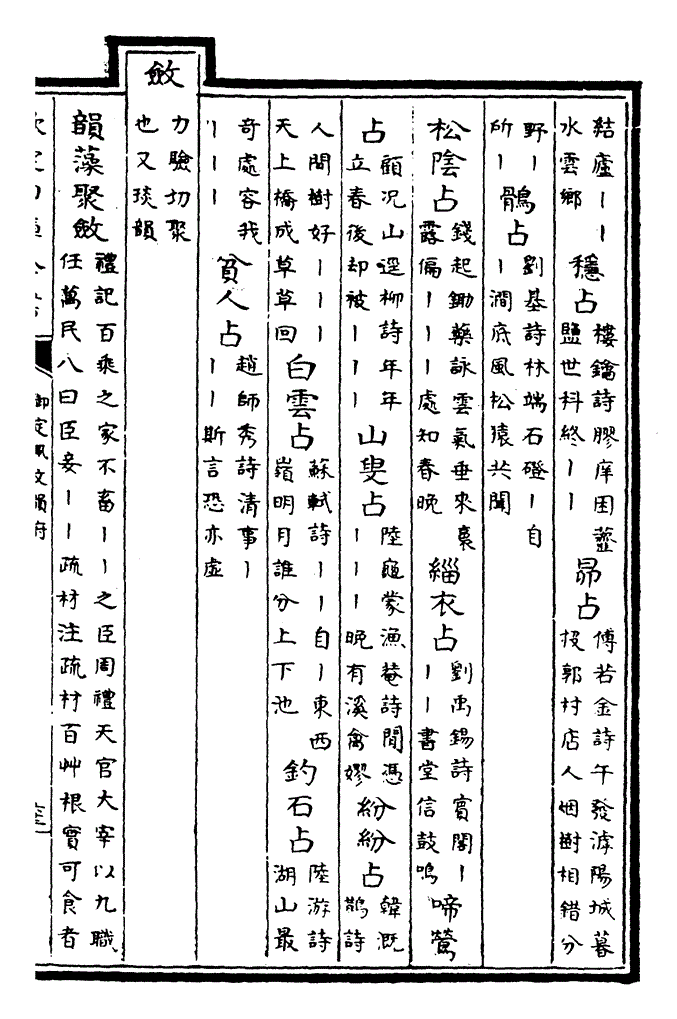 結廬丨丨穩占樓鑰詩膠庠困虀昴占傅若金詩午發滹陽城暮
水雲鄉鹽世科終丨丨投郭村店人烟樹相錯分
野丨鶻占劉基詩林端石磴丨自
所丨丨澗底風松猿共聞
松陰占錢起鋤藥詠雲氣垂來裛緇衣占劉禹錫詩賓閣丨啼鶯
露偏丨丨丨處知春晚丨丨書堂信鼓鳴
占顧況山逕柳詩年年山叟占陸龜蒙漁菴詩閒憑紛紛占韓溉
立春後却被丨丨丨丨丨丨晚有溪禽嫪鵲詩
人間樹好丨丨丨白雲占蘇軾詩丨丨自丨東西釣石占陸游詩
天上橋成草草回嶺明月誰分上下池湖山最
奇處容我貧人占趙師秀詩清事丨
丨丨丨丨丨斯言恐亦虛
斂力驗切聚
也又琰韻
韻藻聚斂禮記百乘之家不畜丨丨之臣周禮天官大宰以九職
任萬民八曰臣妾丨丨疏材注疏材百艸根實可食者
御定佩文韻府